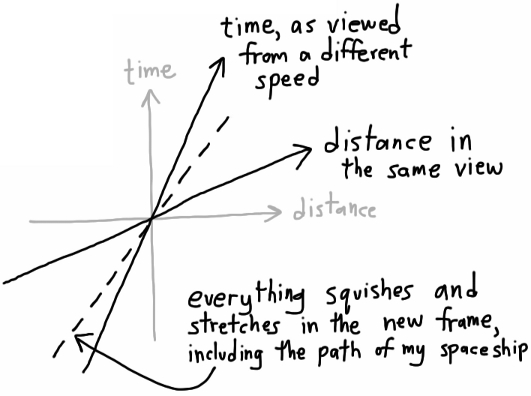 time, as viewed
from a different
speed
time
distance in
the same view
distance
everything squishes and
stretches in the new frame,
including the path of my spaceship